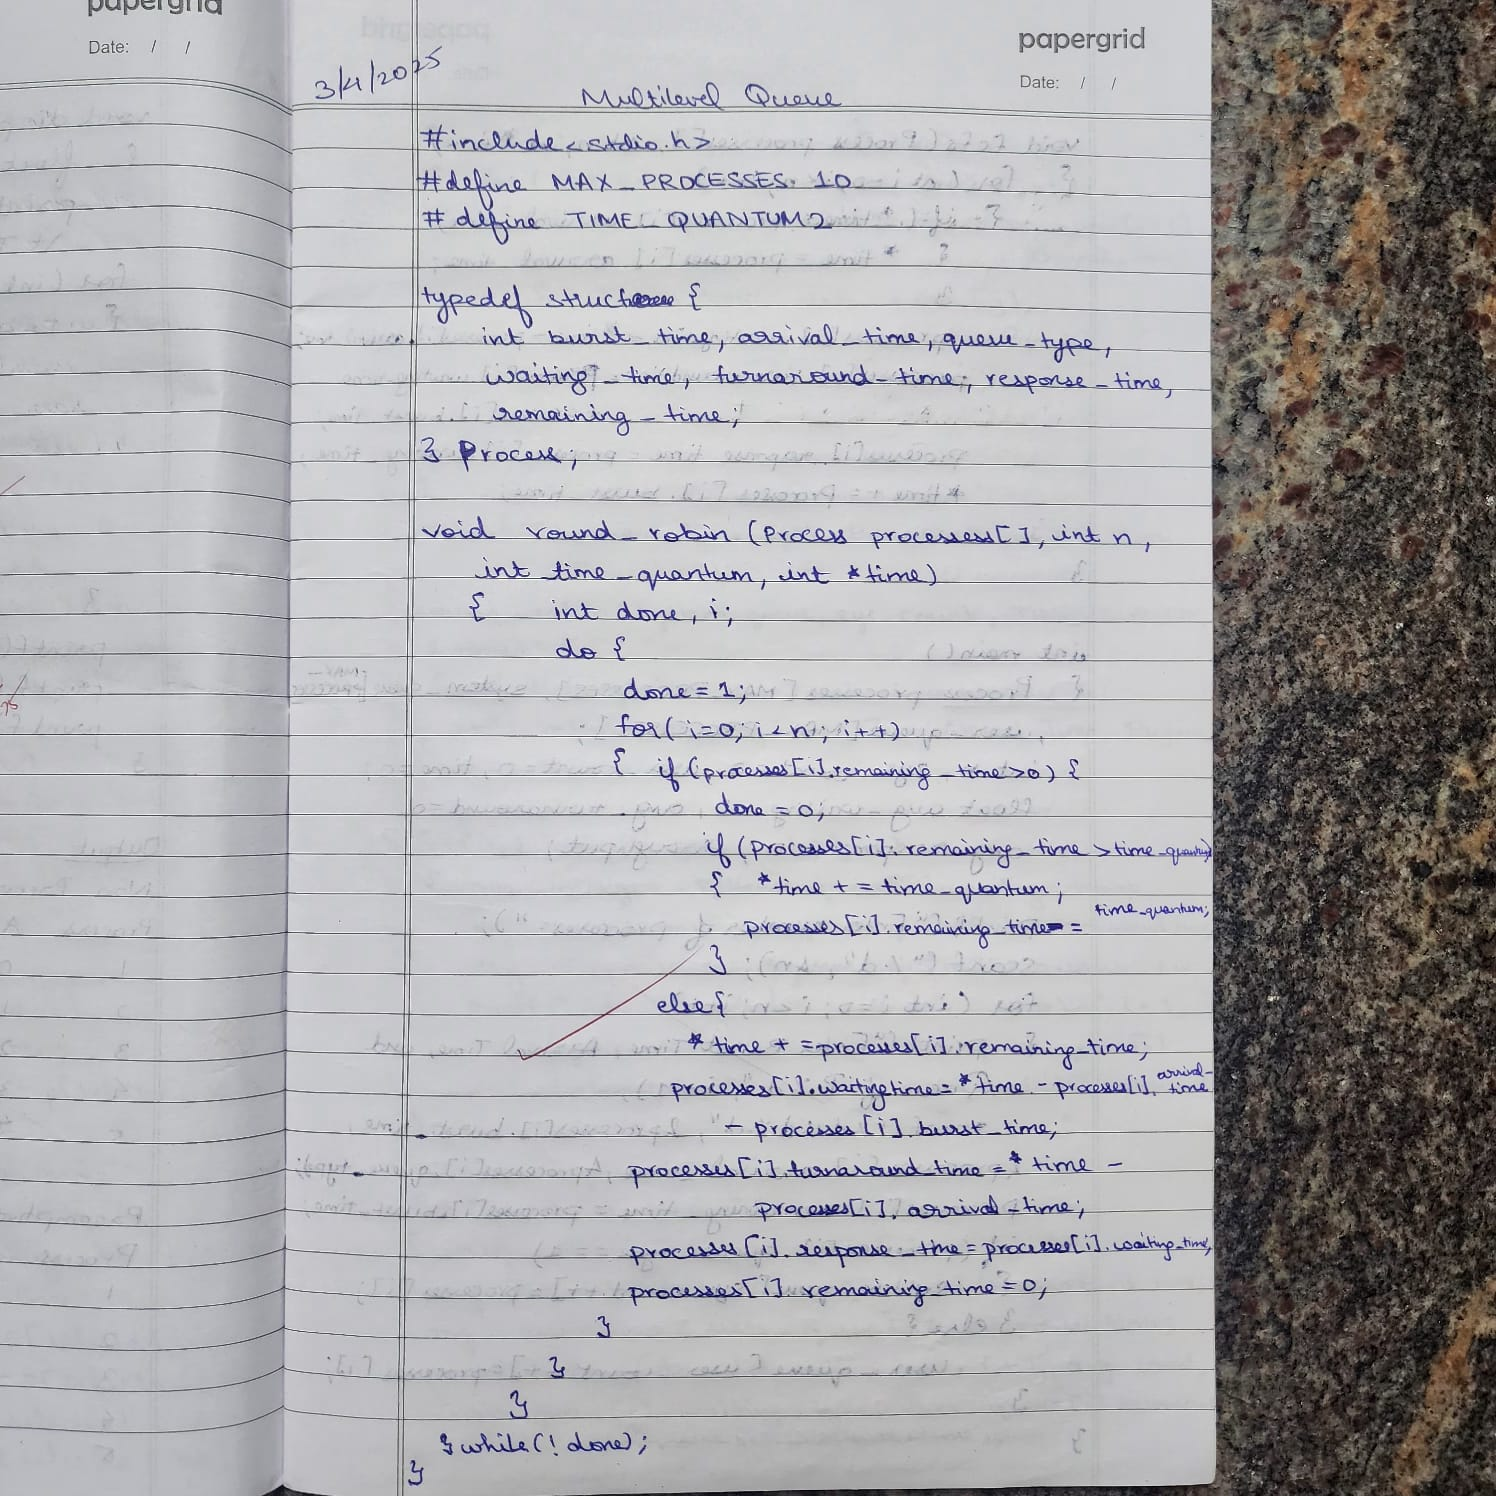 papergrid
Date: / /
papergrid
Date: / /
3/4/2025
Multilevel Queue
#include <stdio.h>
#define MAX_PROCESSES 10
# define TIME_QUANTUM 2
typedef struct {
int burst_time, arrival_time, queue_type,
waiting_time, turnaround_time, response_time,
remaining_time;
} Process;
void round_robin (Process processes[], int n,
int time_quantum, int *time)
{ int done, i;
do {
done = 1;
for( i=0; i<n; i++)
{ if (processes[i].remaining_time>0) {
done = 0;
if (processes[i].remaining_time > time_quantum)
{ *time + = time_quantum;
processes[i].remaining_time-= time_quantum;
}
else{
*time + =processes[i].remaining_time;
processes[i].waitingtime= *time - processes[i].arrival-time
- processes[i].burst_time;
processes[i].turnaround_time = *time -
processes[i].arrival-time;
processes[i].response_time=processes[i].waiting_time;
processes[i].remaining_time=0;
}
}
}
} while(! done);
}